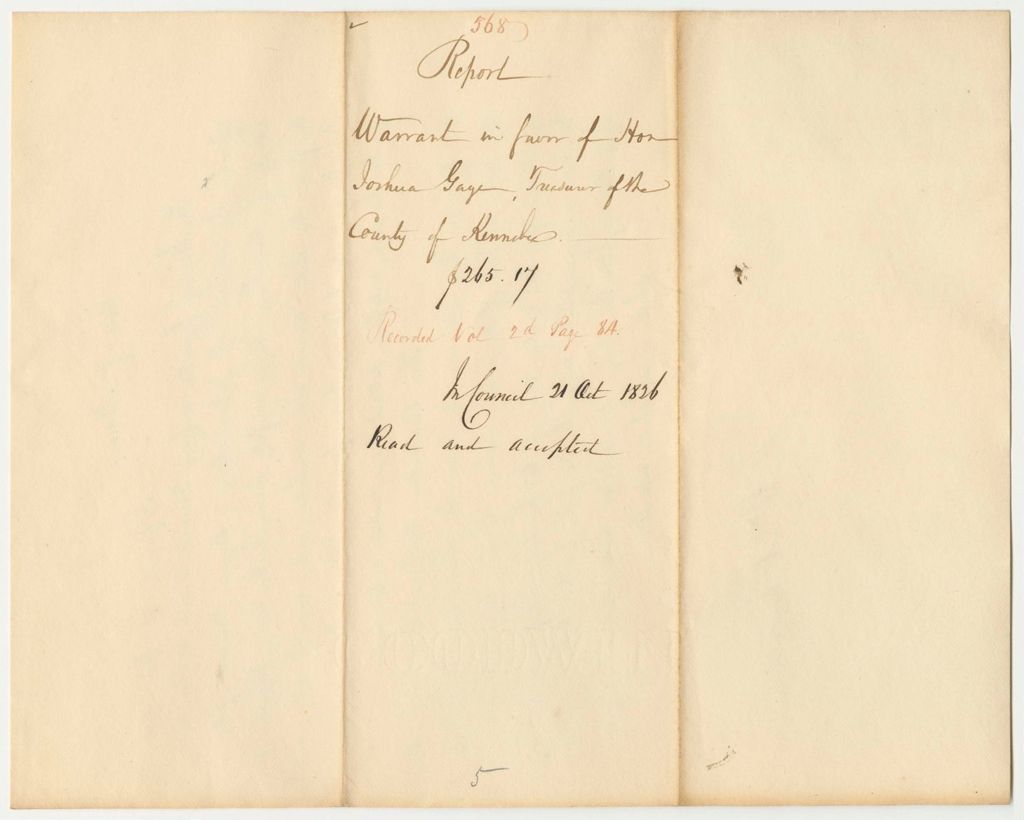 568
Report
Warrant in favor of Hon
Joshua Gage, Treasurer of the
County of Kennebec.
$265.17
Recorded Vol 2d Page 84.
In Council 21 Oct 1826
Read and accepted
5